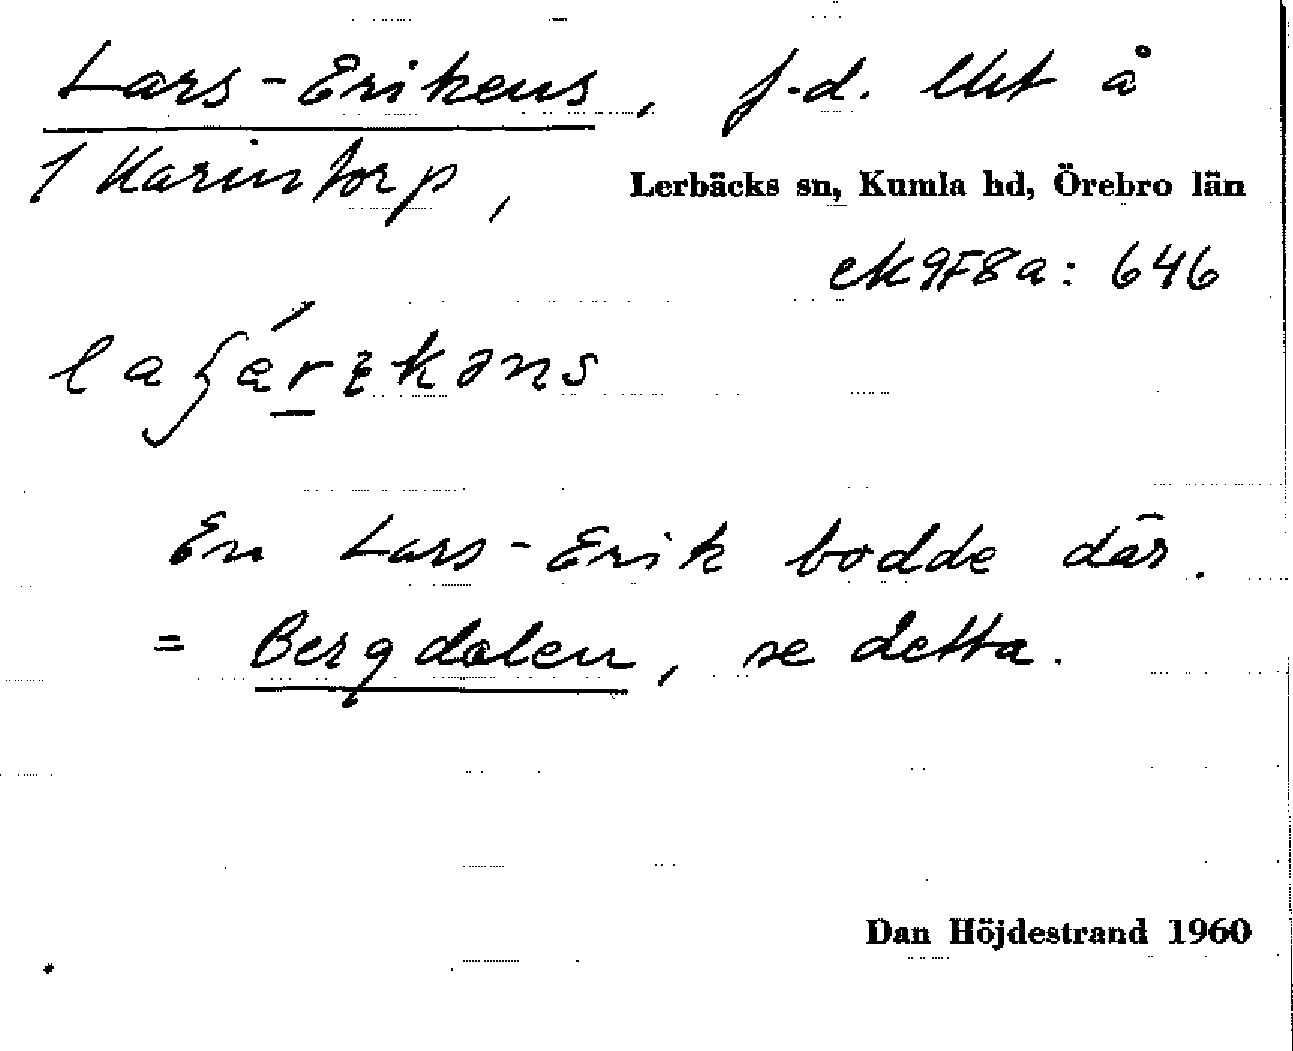 Lars-Erikens, f.d. lht å
1 Karintorp, Lerbäcks sn, Kumla hd, Örebro län
ek 9F8a: 646
En Lars-Erik bodde där.
= Bergdalen, se detta.
Dan Höjdestrand 1960